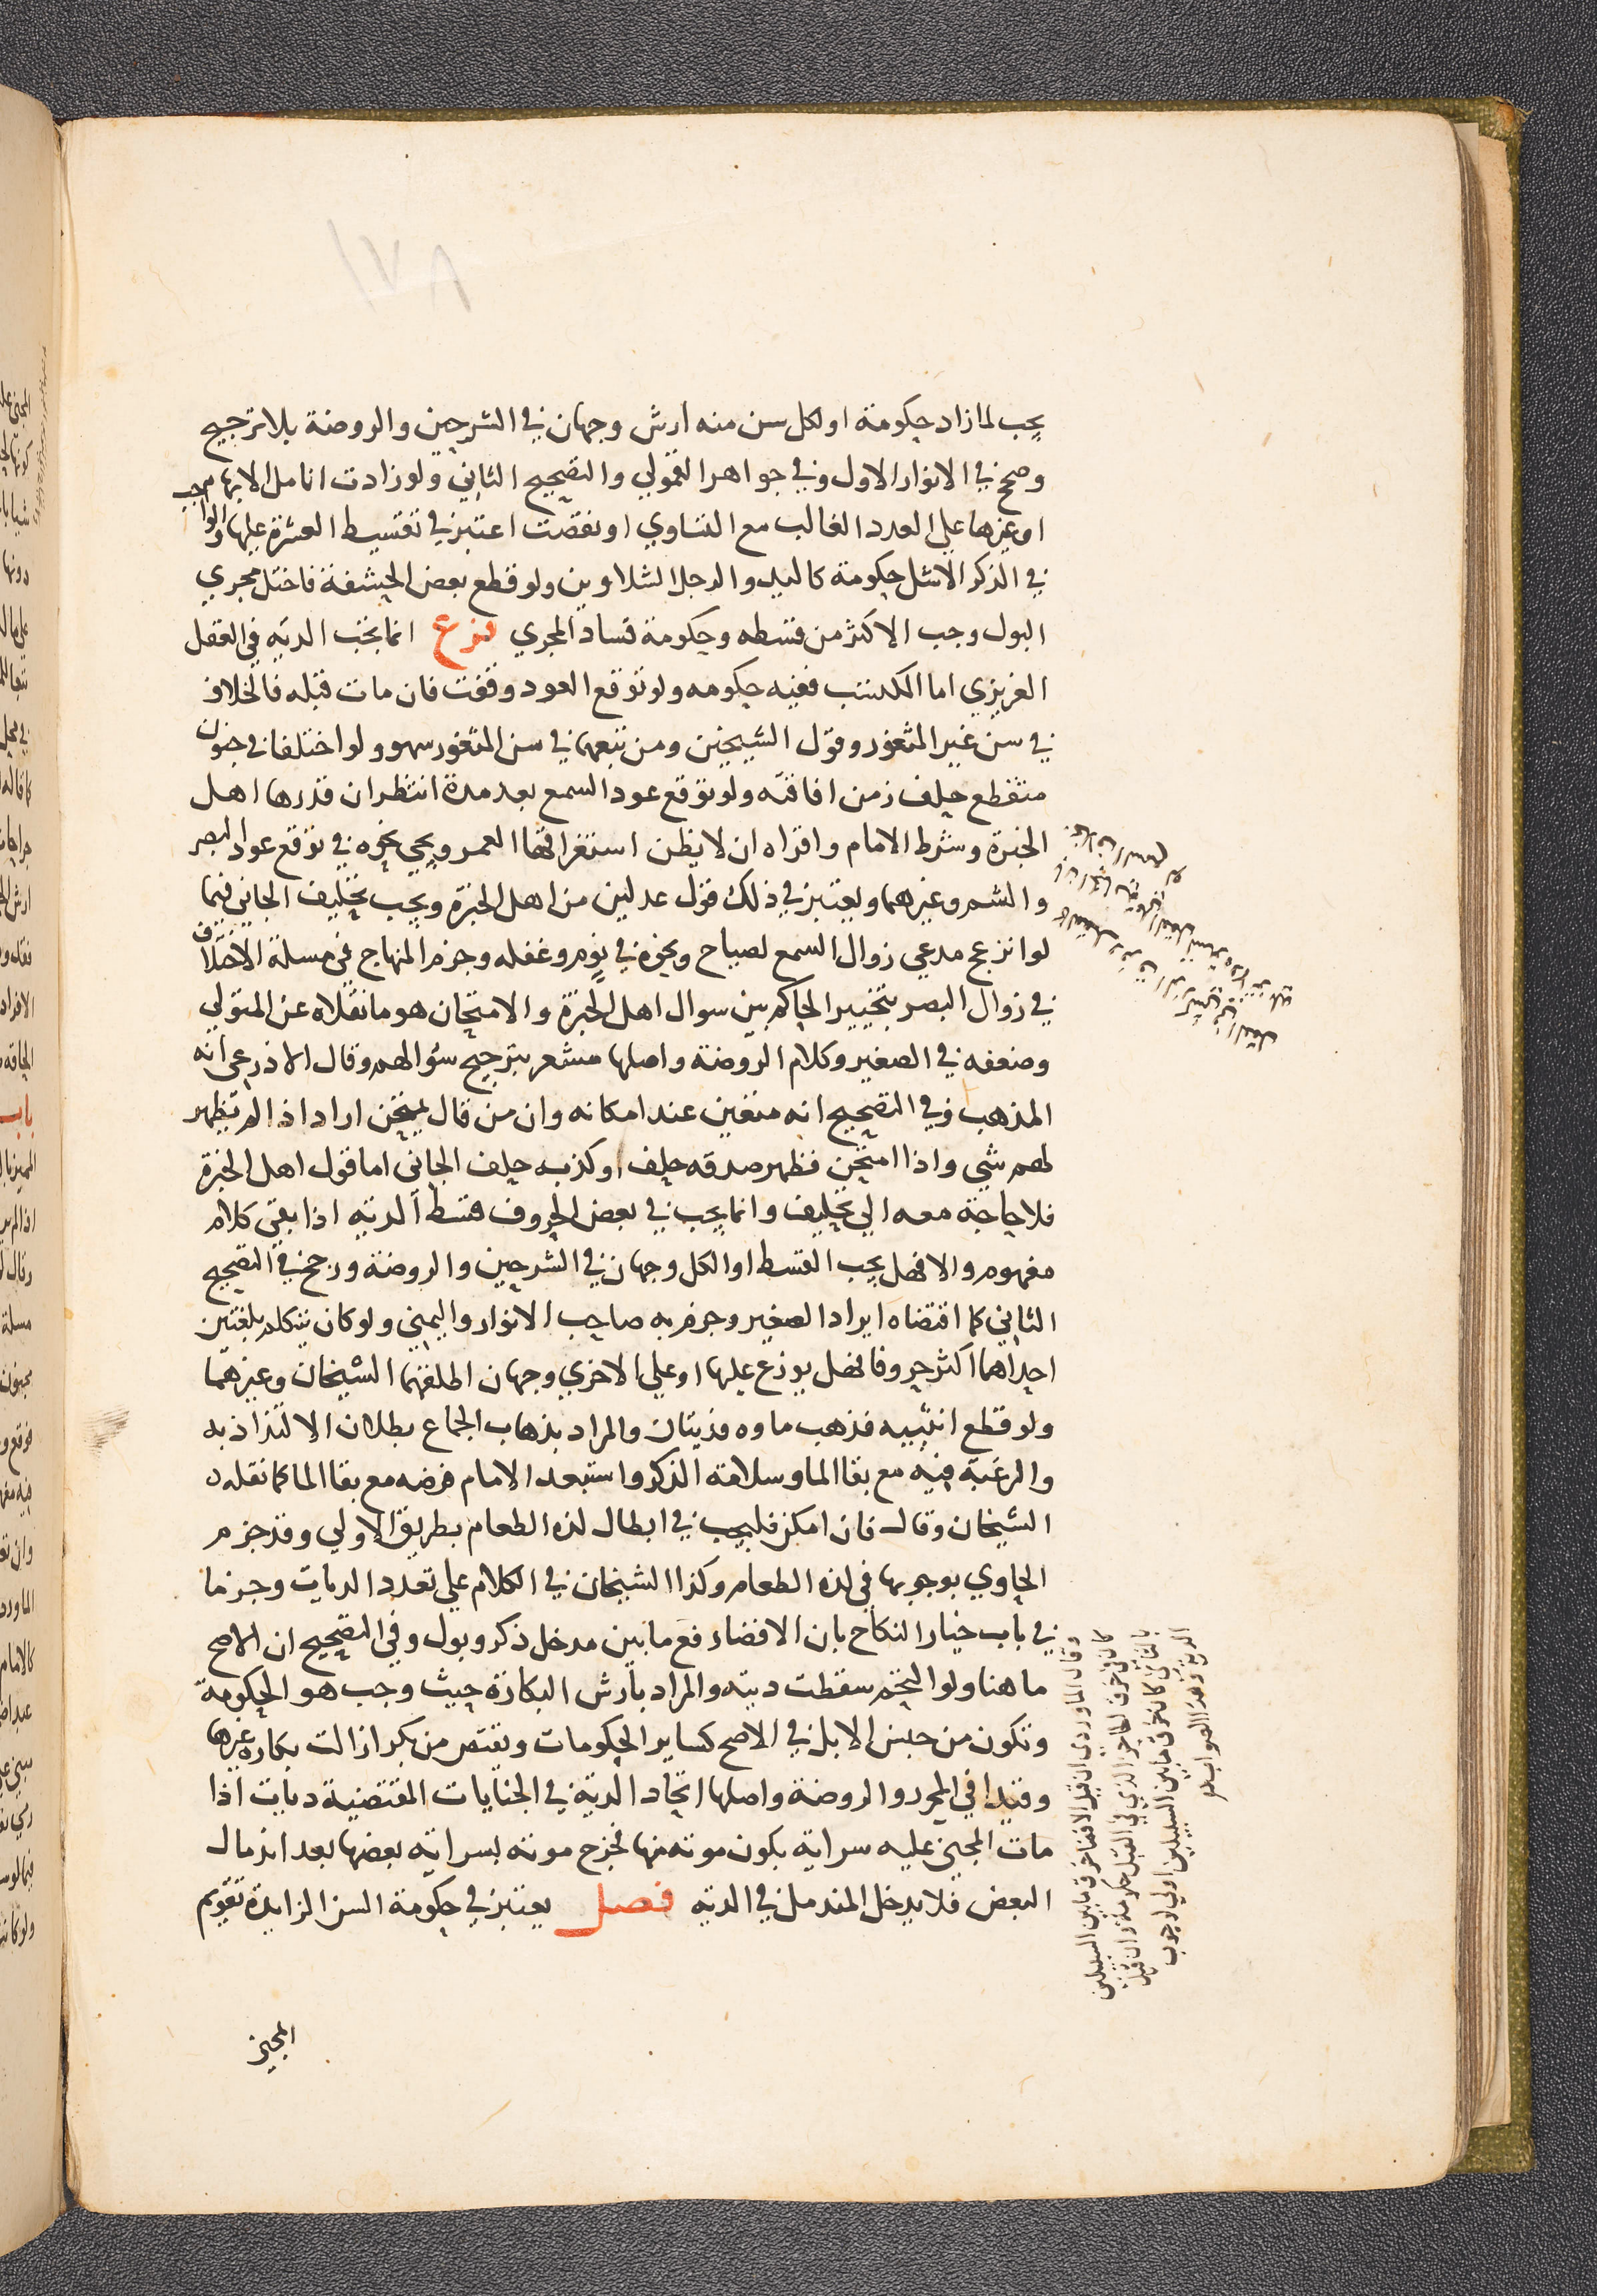 ١٧٨
يجب لما زاد حكومة او لكل سن منه ارش وجهان في الشرحين والروضة بلا ترجيح
وصحح في الانوار الاول وفي جواهر القمولي والتصحيح الثاني ولو زادت انامل الابهام
او غيرها على العدد الغالب مع التساوي او نقصت اعتبر في تقسيط العشرة عليها والواجب
في الذكر الاشل حكومة كاليد والرجل الشلاوين ولو قطع بعض الحشفة فاختل مجري
البول وجب الاكثر من قسطه وحكومة فساد المجري فرع انما تجب الدية في العقل
الغريزي اما المكتسب ففيه حكومه ولو توقع العود وقفت فان مات قبله فالخلاف
في سن غير المثغور وقول الشيخين ومن تبعهما في سن المثغور سهو ولو اختلفا في جنون
متقطع حلف زمن افاقته ولو توقع عود السمع بعد مدة انتظر ان قدرها اهل
الخبرة وشرط الامام واقراه ان لا يظن استغراقها العمر ويجي نحوه في توقع عود البصر
والشم وغيرهما ويعتبر في ذلك قول عدلين من اهل الخبرة ويجب تحليف الجاني فيما
لو انزعج مدعي زوال السمع لصياح ونحوه في نوم وغفله وجزم المنهاج في مسلة الاختلاف
في زوال البصر بتخيير الحاكم بين سوال اهل الخبرة والامتحان هو ما نقلاه عن المتولي
وضعفه في الصغير وكلام الروضة واصلها مشعر بترجيح سؤالهم وقال الاذرعي انه
المذهب وفي التصحيح انه متعين عند امكانه وان من قال يمتحن اراد اذا لم يظهر
لهم شي واذا امتحن فظهر صدقه حلف او كذبه حلف الجاني اما قول اهل الخبرة
فلا حاجة معه الي تحليف وانما يجب في بعض الحروف قسط الدية اذا بقي كلام
مفهوم والا فهل يجب القسط او الكل وجهان في الشرحين والروضة ورجح في التصحيح
الثاني كما اقتضاه ايراد الصغير وجزم به صاحب الانوار واليمني ولو كان يتكلم بلغتين
احداهما اكثر حروفا فهل يوزع عليها او على الاخري وجهان اطلقهما الشيخان وغيرهما
ولو قطع انثييه فذهب ماوه فديتان والمراد بذهاب الجماع بطلان الالتذاذ به
والرغبة فيه مع بقا الما وسلامة الذكر واستبعد الامام فرضه مع بقا الما كما نقله
الشيخان وقال فان امكن فليجب في ابطال لذه الطعام بطريق الاولي وقد جزم
الحاوي بوجوبها في لذه الطعام وكذا الشيخان في الكلام على تعدد الديات وجزما
في باب خيار النكاح بان الافضا رفع ما بين مدخل ذكر وبول وفي التصحيح ان الاصح
ما هنا ولو التحم سقطت ديته والمراد بارش البكارة حيث وجب هو الحكومة
وتكون من جنس الابل في الاصح كساير الحكومات وتقتص من بكر ازالت بكارة غيرها
وقيدا في المحرر والروضة واصلها اتحاد الدية في الجنايات المقتضية ديات اذا
مات المجني عليه سراية بكون موته منها فخرج موته بسراية بعضها بعد اندمال
البعض فلا يدخل المندمل في الدية فصل يعتبر في حكومة السن الزايدة تقويم
وقال الماوردي ان قيل الافضا خرق ما بين السبيلين
كان في خرق الحاجز الذي في القبل حكومة وان قيل
بالثاني كان خرق ما بين السبيلين اولي بوجوب
الدية وهذا الصواب
المجني